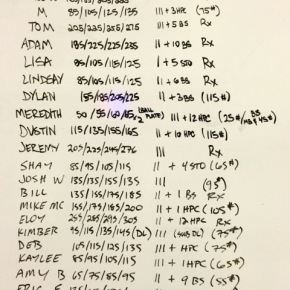 M 85/105/125/135 III + 3HPC (75#)
TOM 205/225/255/275 II + 5 BS Rx
ADAM 185/225/225/235 II + 10 BS Rx
LISA 85/105/115/125 II + 5 STO Rx
LINDSAY 85/105/115/125 II + 6 BS Rx
DYLAN 155/185/205/225 II + 3 BS (115#)
MEREDITH 50/55/60/65 III + 12 HPC (25#
DUSTIN 115/135/155/165 II + 10 HPC (115#)
JEREMY 205/225/245/276 III Rx
SHAY 85/95/105/115 II + 4 STO (65#)
JOSH W 135/135/155/135 III (95#)
BILL 135/155/175/185 II + 1 BS Rx
MIKE MC 155/175/185/200 II + 1 HPC (105#)
ELOY 255/285/295/305 II + 12 HPC Rx
KIMBER 95/115/135/145 (DL) III (SUB DL) (75#)
DEB 105/115/125/135 III + HPC (75#)
KAYLEE 85/95/105/115 II + 1 HPC (65#)
AMY B 65/75/85/95 II + 9 BS (55#)